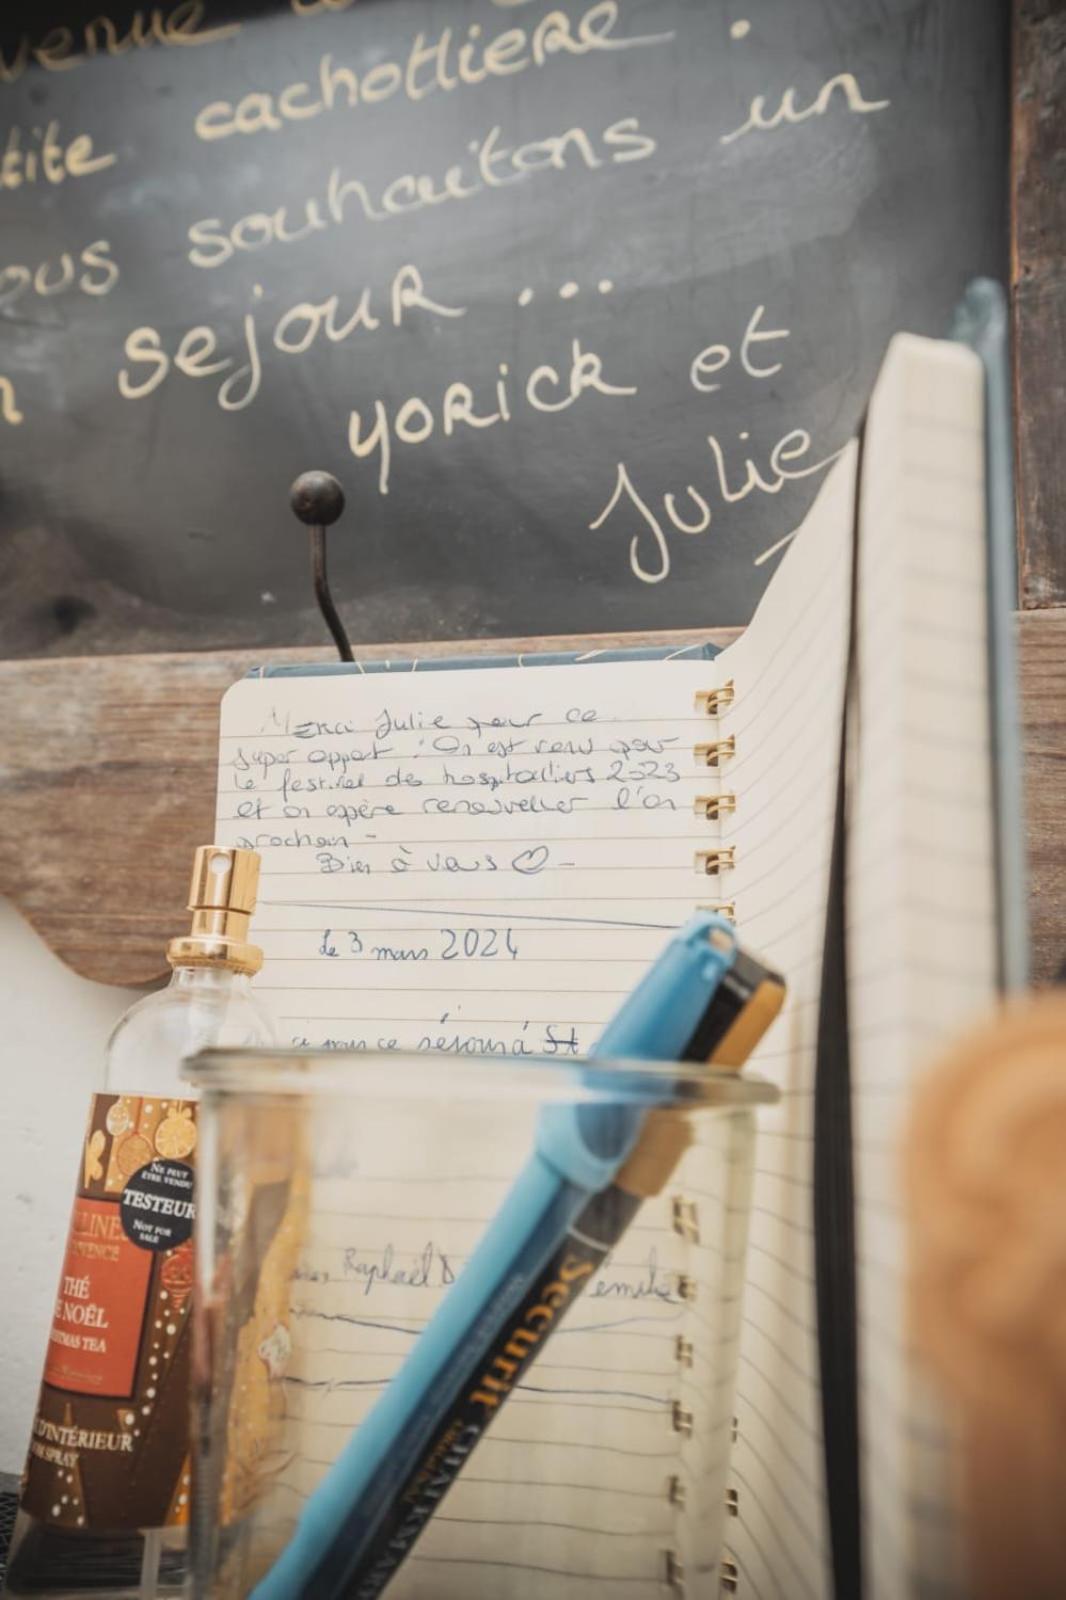 venue
tite cachottiere.
ous souhaitons un
n sejour...
yorick et
Julie
Merci Julie pour ce
super appart! On est venu pour
le festival des hospitaliers 2023
et on espère renouveller l'an
prochain -
Bien à vous ♡ -
Le 3 mars 2024
ce séjour à St
Raphaël D
émilie
NE PEUT
ÊTRE VENDU
TESTEUR
NOT FOR
SALE
LINES
OVENCE
THÉ
E NOËL
TMAS TEA
D'INTÉRIEUR
M SPRAY
Securit CHALKMARK
ORIGINAL